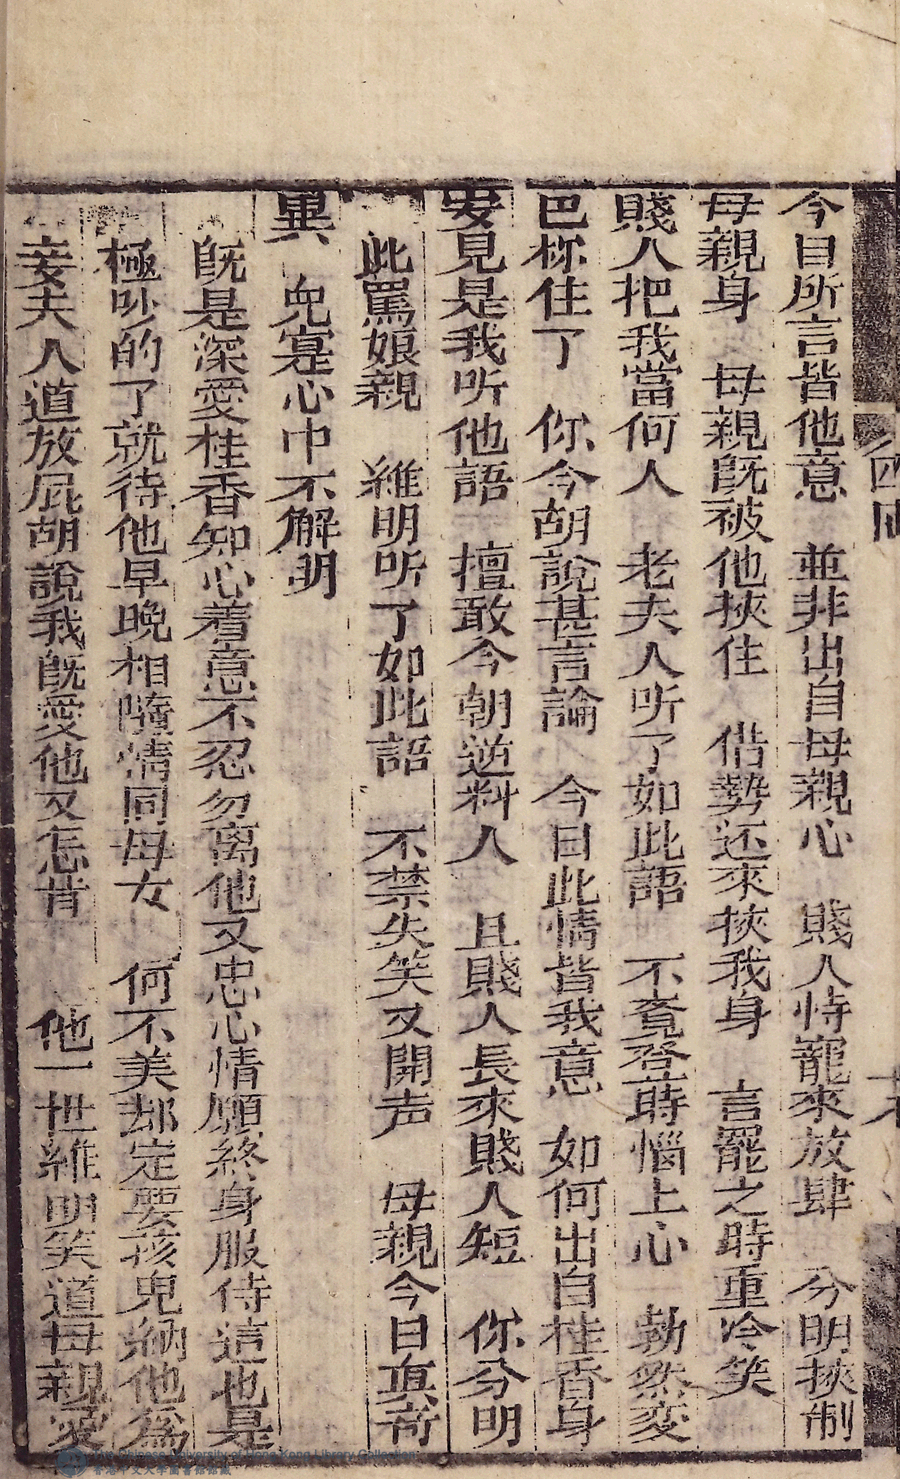 今日所言皆他意　並非出自母親心　賤人恃寵來放肆　分明挾制
母親身　母親既被他挾住　借勢还來挾我身　言罷之時重冷笑
賤人把我當何人　老夫人听了如此語　不覔登時惱上心　勃然变
色𫢗住了　你今胡說甚言論　今日此情皆我意　如何出自桂香身
安見是我听他語　擅敢今朝逆料人　且賤人長來賤人短　你分明
此罵娘親　維明听了如此語　不禁失笑又開声　母親今日真奇
異　児寔心中不解明
既是深愛桂香知心着意不忍勿离他又忠心情願終身服侍這也是
極吵的了就待他早晚相隨情同母女　何不美却定要孩兒納他為
妾夫人道放屁胡說我既愛他又怎肯　他一世維明笑道母親愛
四回
香港中文大學圖書館館藏